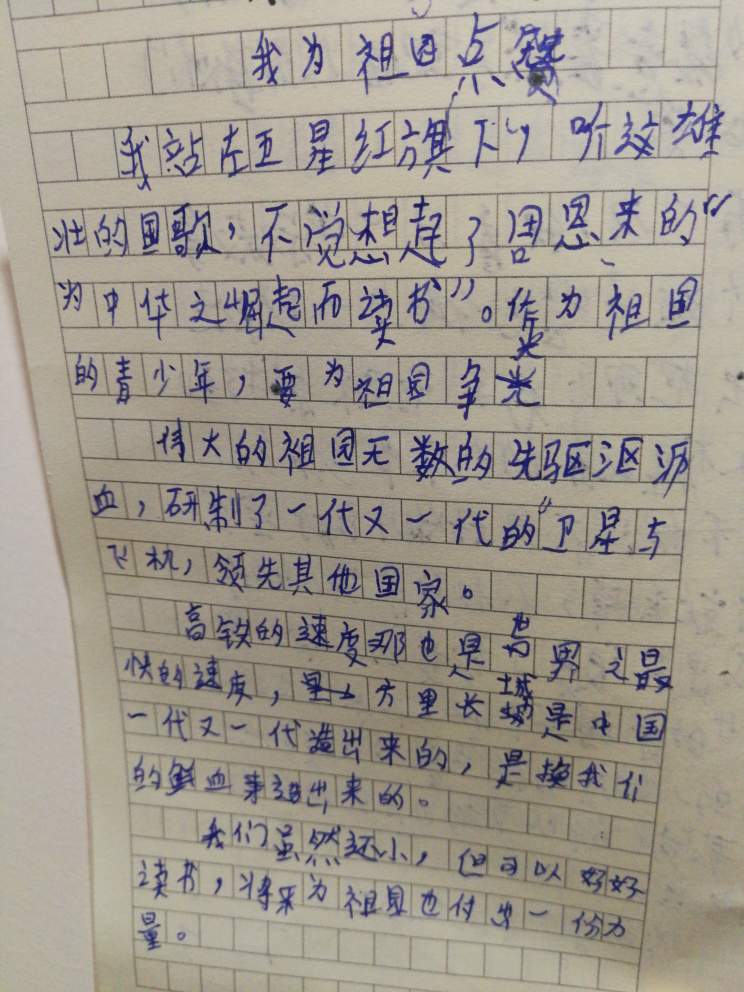 我为祖国点赞
我站在五星红旗下，听这雄
壮的国歌，不觉想起了周恩来的“
为中华之崛起而读书”。作为祖国
的青少年，要为祖国争光
伟大的祖国无数的先驱沤沥
血，研制了一代又一代的“卫星与
飞机，领先其他国家。
高铁的速度那也是世界之最
快的速度，万里长城是中国
一代又一代造出来的，是换我们
的鲜血来造出来的。
我们虽然还小，但可以好好
读书，将来为祖国也付出一份力
量。